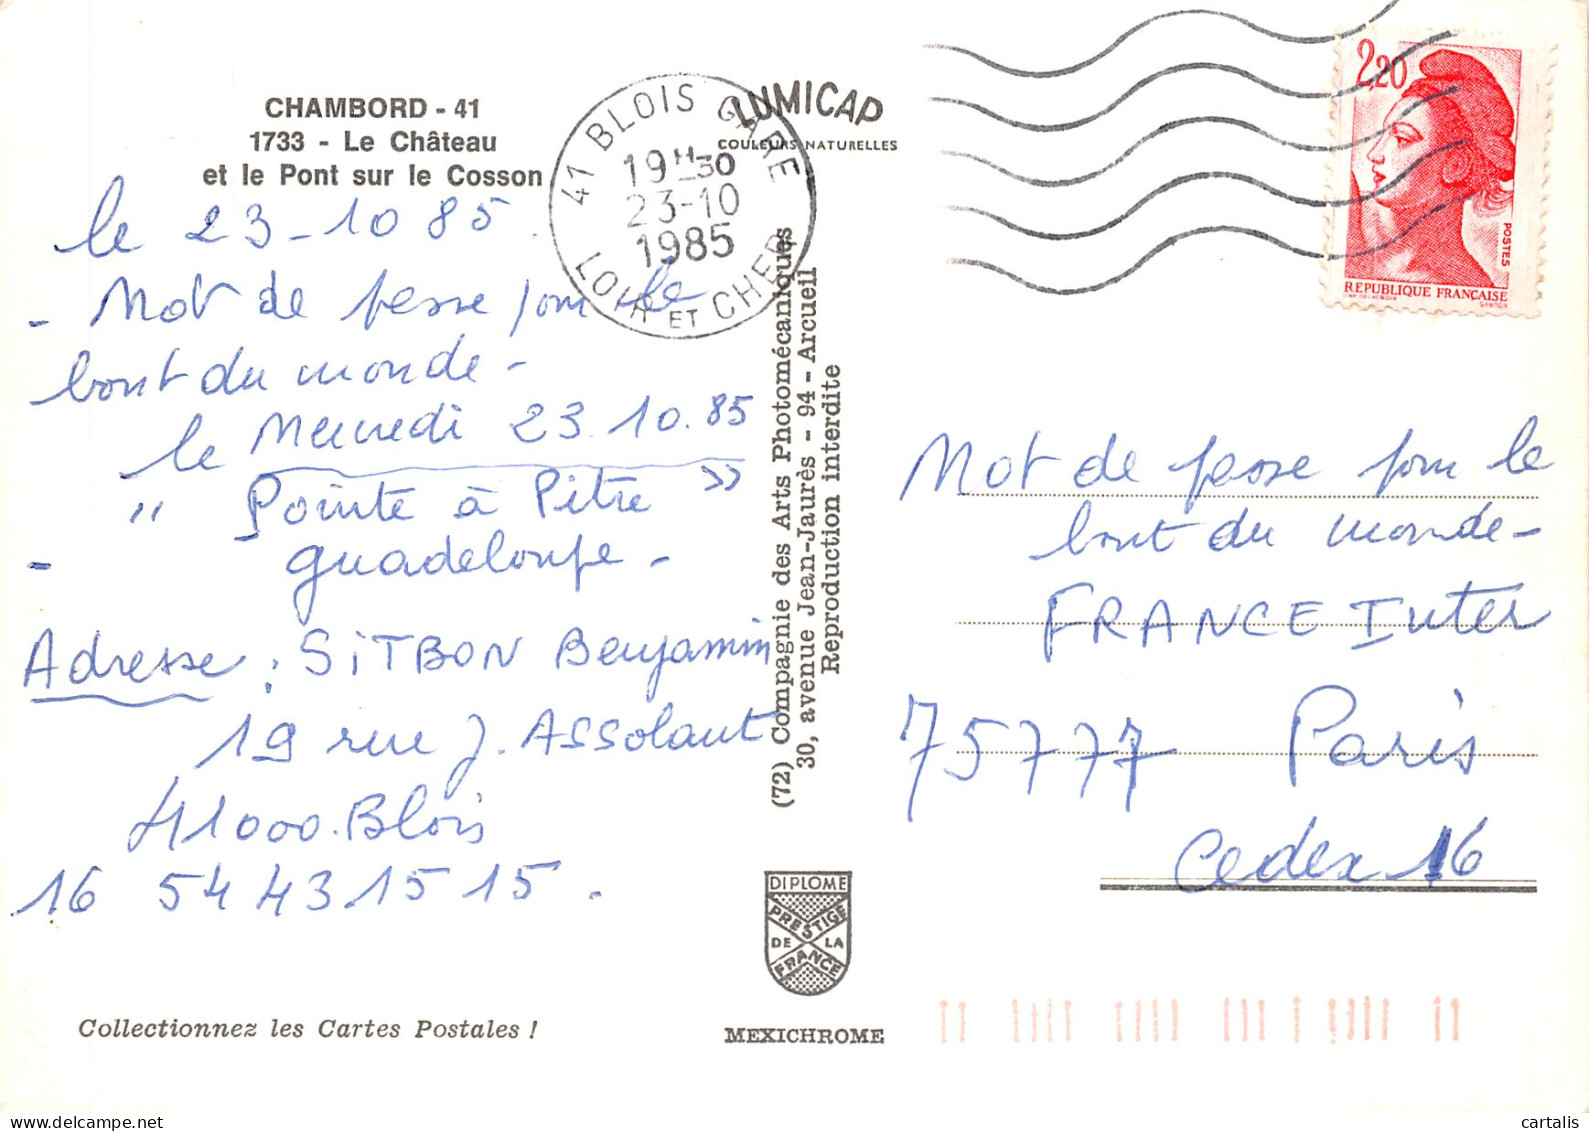 CHAMBORD - 41
1733 - Le Château
et le Pont sur le Cosson
le 23-10 85.
- Mot de passe pour le
bout du monde -
le Mercredi 23.10.85
" Pointe à Pitre »
- guadeloupe -
Adresse : SiTBON Benjamin
19 rue J. Assolant
41000.Blois
16 54 43 15 15.
Collectionnez les Cartes Postales !
41 BLOIS GARE
19H30
23-10
1985
LOIR ET CHER
LUMICAP
COULEURS NATURELLES
(72) Compagnie des Arts Photomécaniques
30, avenue Jean-Jaurès - 94 - Arcueil
Reproduction interdite
DIPLOME
PRESTIGE
DE LA
FRANCE
MEXICHROME
2,20
POSTES
REPUBLIQUE FRANÇAISE
D'AP. DELACROIX GANDON
Mot de passe pour le
bout du monde -
FRANCE Inter
75777 Paris
Cedex 16
cartalis